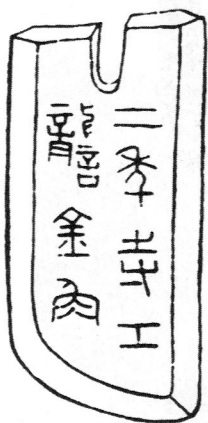 二年寺工
讋金角